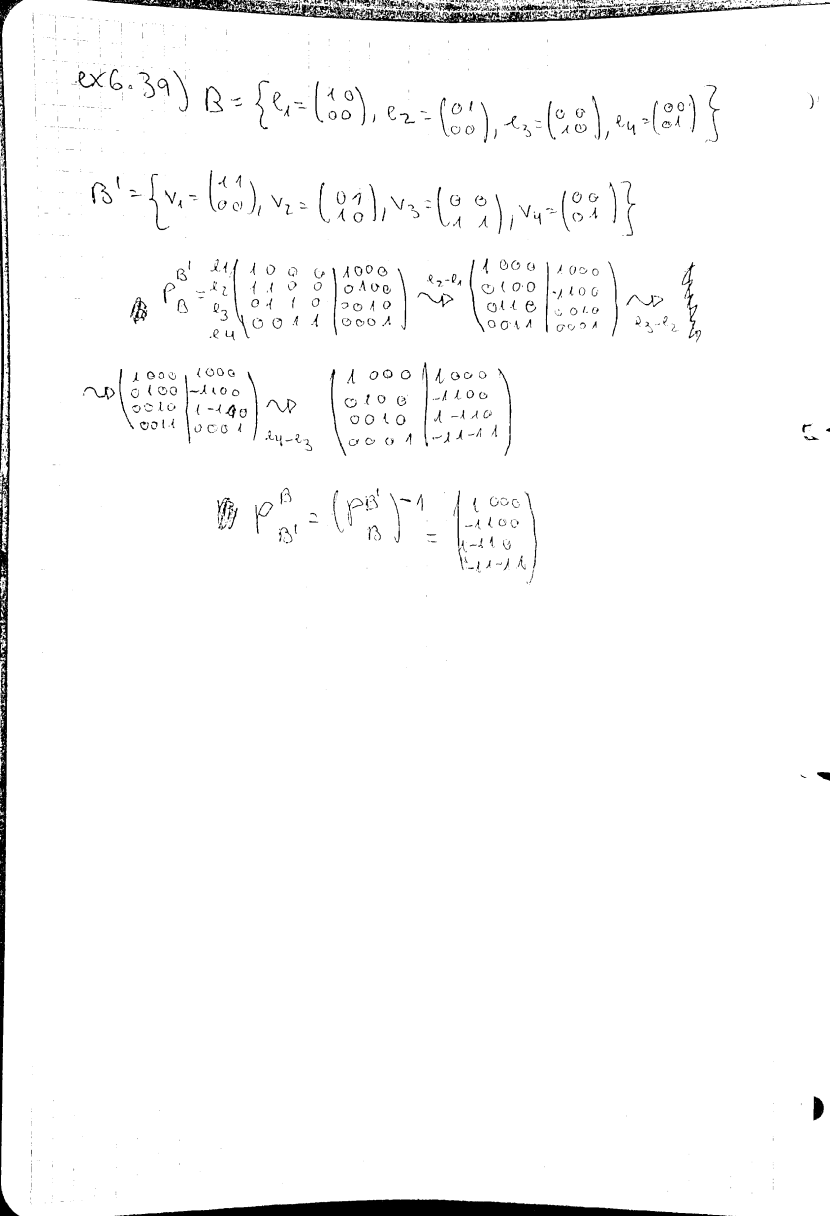 ex6.39) B = {e₁ = (1 0 / 0 0), e₂ = (0 1 / 0 0), e₃ = (0 0 / 1 0), e₄ = (0 0 / 0 1)}
B' = {v₁ = (1 1 / 0 0), v₂ = (0 1 / 1 0), v₃ = (0 0 / 1 1), v₄ = (0 0 / 0 1)}
P_B^B' = e1 e2 e3 e4 (1 0 0 0 | 1 0 0 0 / 1 1 0 0 | 0 1 0 0 / 0 1 1 0 | 0 0 1 0 / 0 0 1 1 | 0 0 0 1) ⇝ e₂-e₁ (1 0 0 0 | 1 0 0 0 / 0 1 0 0 | -1 1 0 0 / 0 1 1 0 | 0 0 1 0 / 0 0 1 1 | 0 0 0 1) ⇝ e₃-e₂
⇝ (1 0 0 0 | 1 0 0 0 / 0 1 0 0 | -1 1 0 0 / 0 0 1 0 | 1 -1 1 0 / 0 0 1 1 | 0 0 0 1) ⇝ e₄-e₃ (1 0 0 0 | 1 0 0 0 / 0 1 0 0 | -1 1 0 0 / 0 0 1 0 | 1 -1 1 0 / 0 0 0 1 | -1 1 -1 1)
P_B'^B = (P_B^B')^-1 = (1 0 0 0 / -1 1 0 0 / 1 -1 1 0 / -1 1 -1 1)